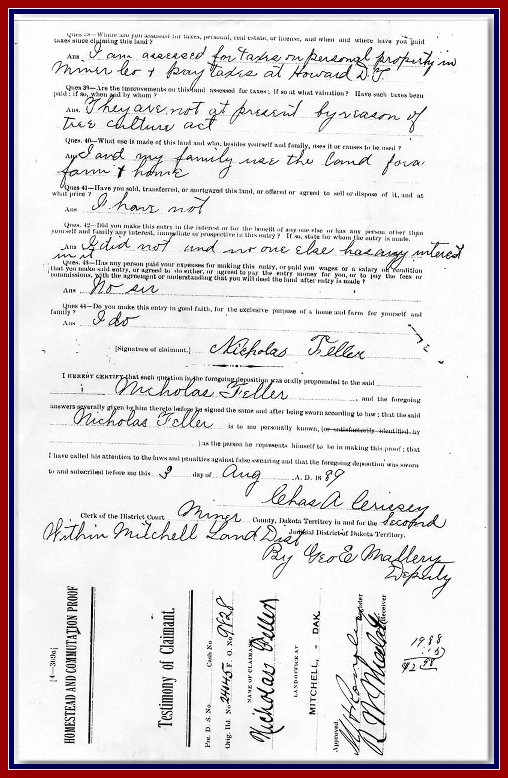 Ques 38—Where are you assessed for taxes, personal, real estate, or license, and when and where have you paid
taxes since claiming this land?
Ans I am assessed for taxes on personal property in
Miner Co + pay taxes at Howard D T
Ques 39—Are the improvements on this land assessed for taxes; if so at what valuation? Have such taxes been
paid; if so, when and by whom?
Ans. They are not at present by reason of
tree culture act
Ques. 40—What use is made of this land and who, besides yourself and family, uses it or causes to be used?
Ans I and my family use the land for a
farm & home
Ques 41—Have you sold, transferred, or mortgaged this land, or offered or agreed to sell or dispose of it, and at
what price?
Ans I have not
Ques. 42—Did you make this entry in the interest or for the benefit of any one else or has any person other than
yourself and family any interest, immediate or prospective in this entry? If so, state for whom the entry is made.
Ans I did not and no one else has any interest
in it
Ques. 43—Has any person paid your expenses for making this entry, or paid you wages or a salary on condition
that you make said entry, or agreed to do either, or agreed to pay the entry money for you, or to pay the fees or
commissions, with the agreement or understanding that you will deed the land after entry is made?
Ans No sir
Ques 44—Do you make this entry in good faith, for the exclusive purpose of a home and farm for yourself and
family?
Ans I do
[Signature of claimant.] Nicholas Feller
I HEREBY CERTIFY that each question in the foregoing deposition was orally propounded to the said
Nicholas Feller, and the foregoing
answers severally given by him thereto before he signed the same and after being sworn according to law; that the said
Nicholas Feller is to me personally known, (or satisfactorily identified by
) as the person he represents himself to be in making this proof; that
I have called his attention to the laws and penalties against false swearing and that the foregoing deposition was sworn
to and subscribed before me this 3 day of Aug A. D. 1889
Chas A
Clerk of the District Court Miner County, Dakota Territory in and for the Second
Judicial District of Dakota Territory.
Within Mitchell Land Dist
By Geo E Mallery
Deputy
[4—369b]
HOMESTEAD AND COMMUTATION PROOF
Testimony of Claimant.
Pre. D. S. No. Cash No.
Orig. Hd. No. 24145 F. O. No 9828
Nicholas Feller
NAME OF CLAIMANT
LAND OFFICE AT
MITCHELL, - DAK.
Approved
Register
Receiver